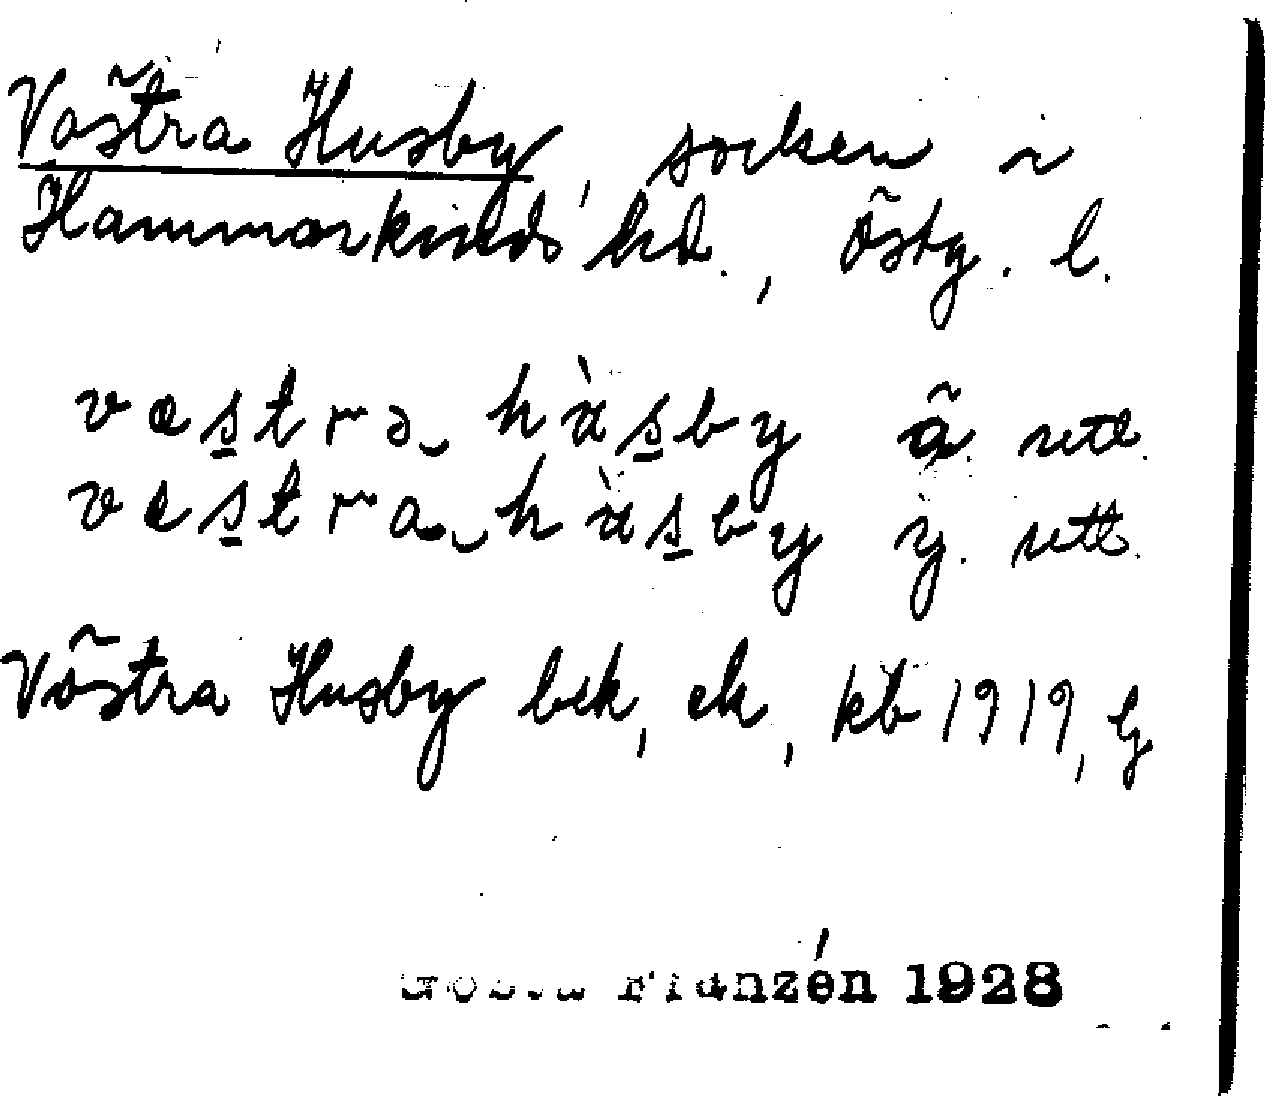 Västra Husby, socken i
Hammarkinds hd., Östg. l.
væstra hùsby ä. utt.
vestra hùsby y. utt.
Västra Husby bck, ek, kb 1919, Eg
Gösta Franzén 1928